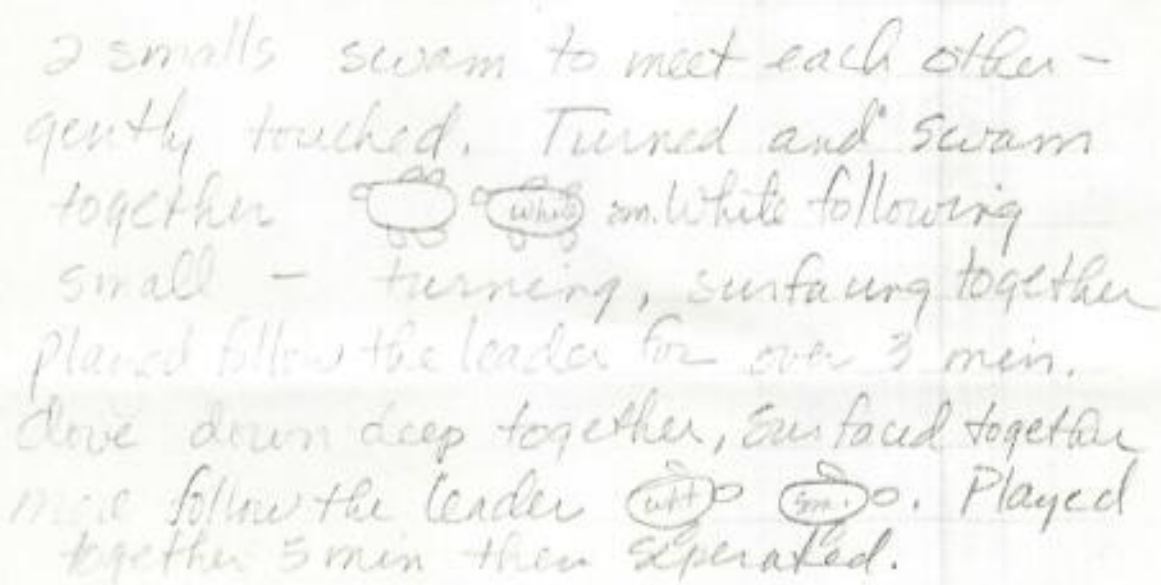 2 smalls swam to meet each other -
gently touched. Turned and swam
together White sm. White following
small - turning, surfacing together
Played follow the leader for over 3 min.
dove down deep together, surfaced together
more follow the leader wht sm. . Played
together 5 min then seperated.